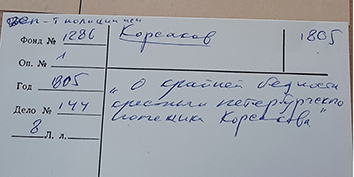 Деп-т полиции исп
Фонд № 1286 Корсаков 1805
Оп. № 1
Год 1805
Дело № 144
8 Л. л.
"О крайней бедности
крестьян петербургского
помещика Корсакова"